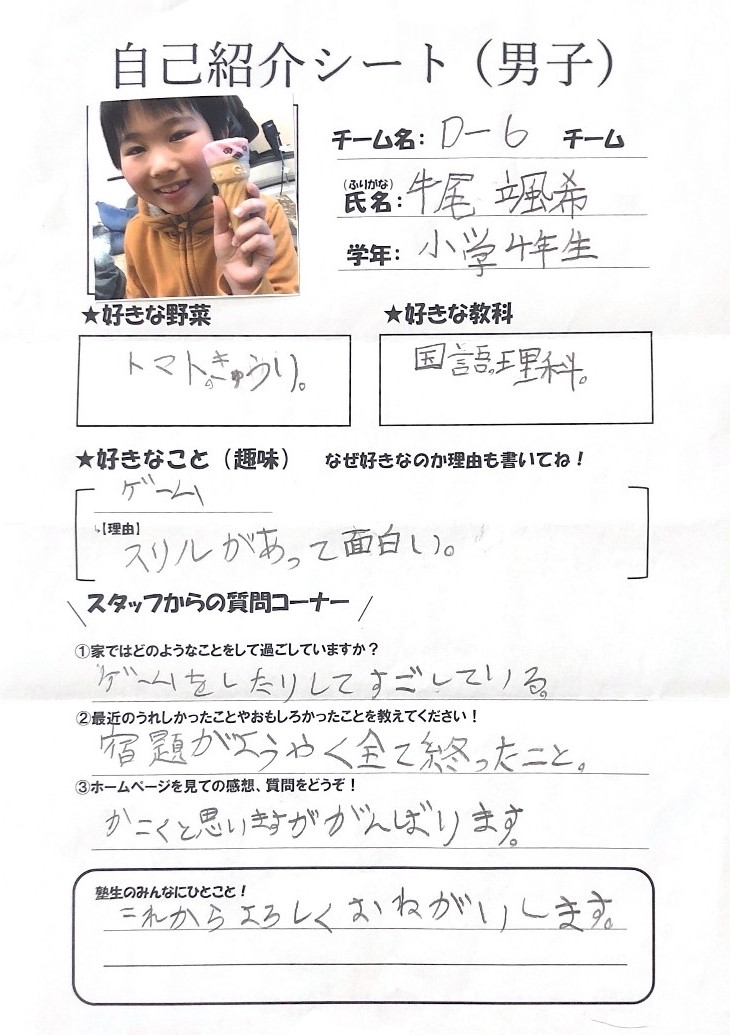 自己紹介シート（男子）
チーム名：D-6 チーム
（ふりがな）
氏名：牛尾 颯希
学年：小学4年生
★好きな野菜
トマト。きゅうり。
★好きな教科
国語。理科。
★好きなこと（趣味） なぜ好きなのか理由も書いてね！
ゲーム
↳【理由】
スリルがあって面白い。
＼スタッフからの質問コーナー／
①家ではどのようなことをして過ごしていますか？
ゲームをしたりしてすごしている。
②最近のうれしかったことやおもしろかったことを教えてください！
宿題がようやく全て終ったこと。
③ホームページを見ての感想、質問をどうぞ！
かこくと思いますががんばります。
塾生のみんなにひとこと！
これからよろしくおねがいします。